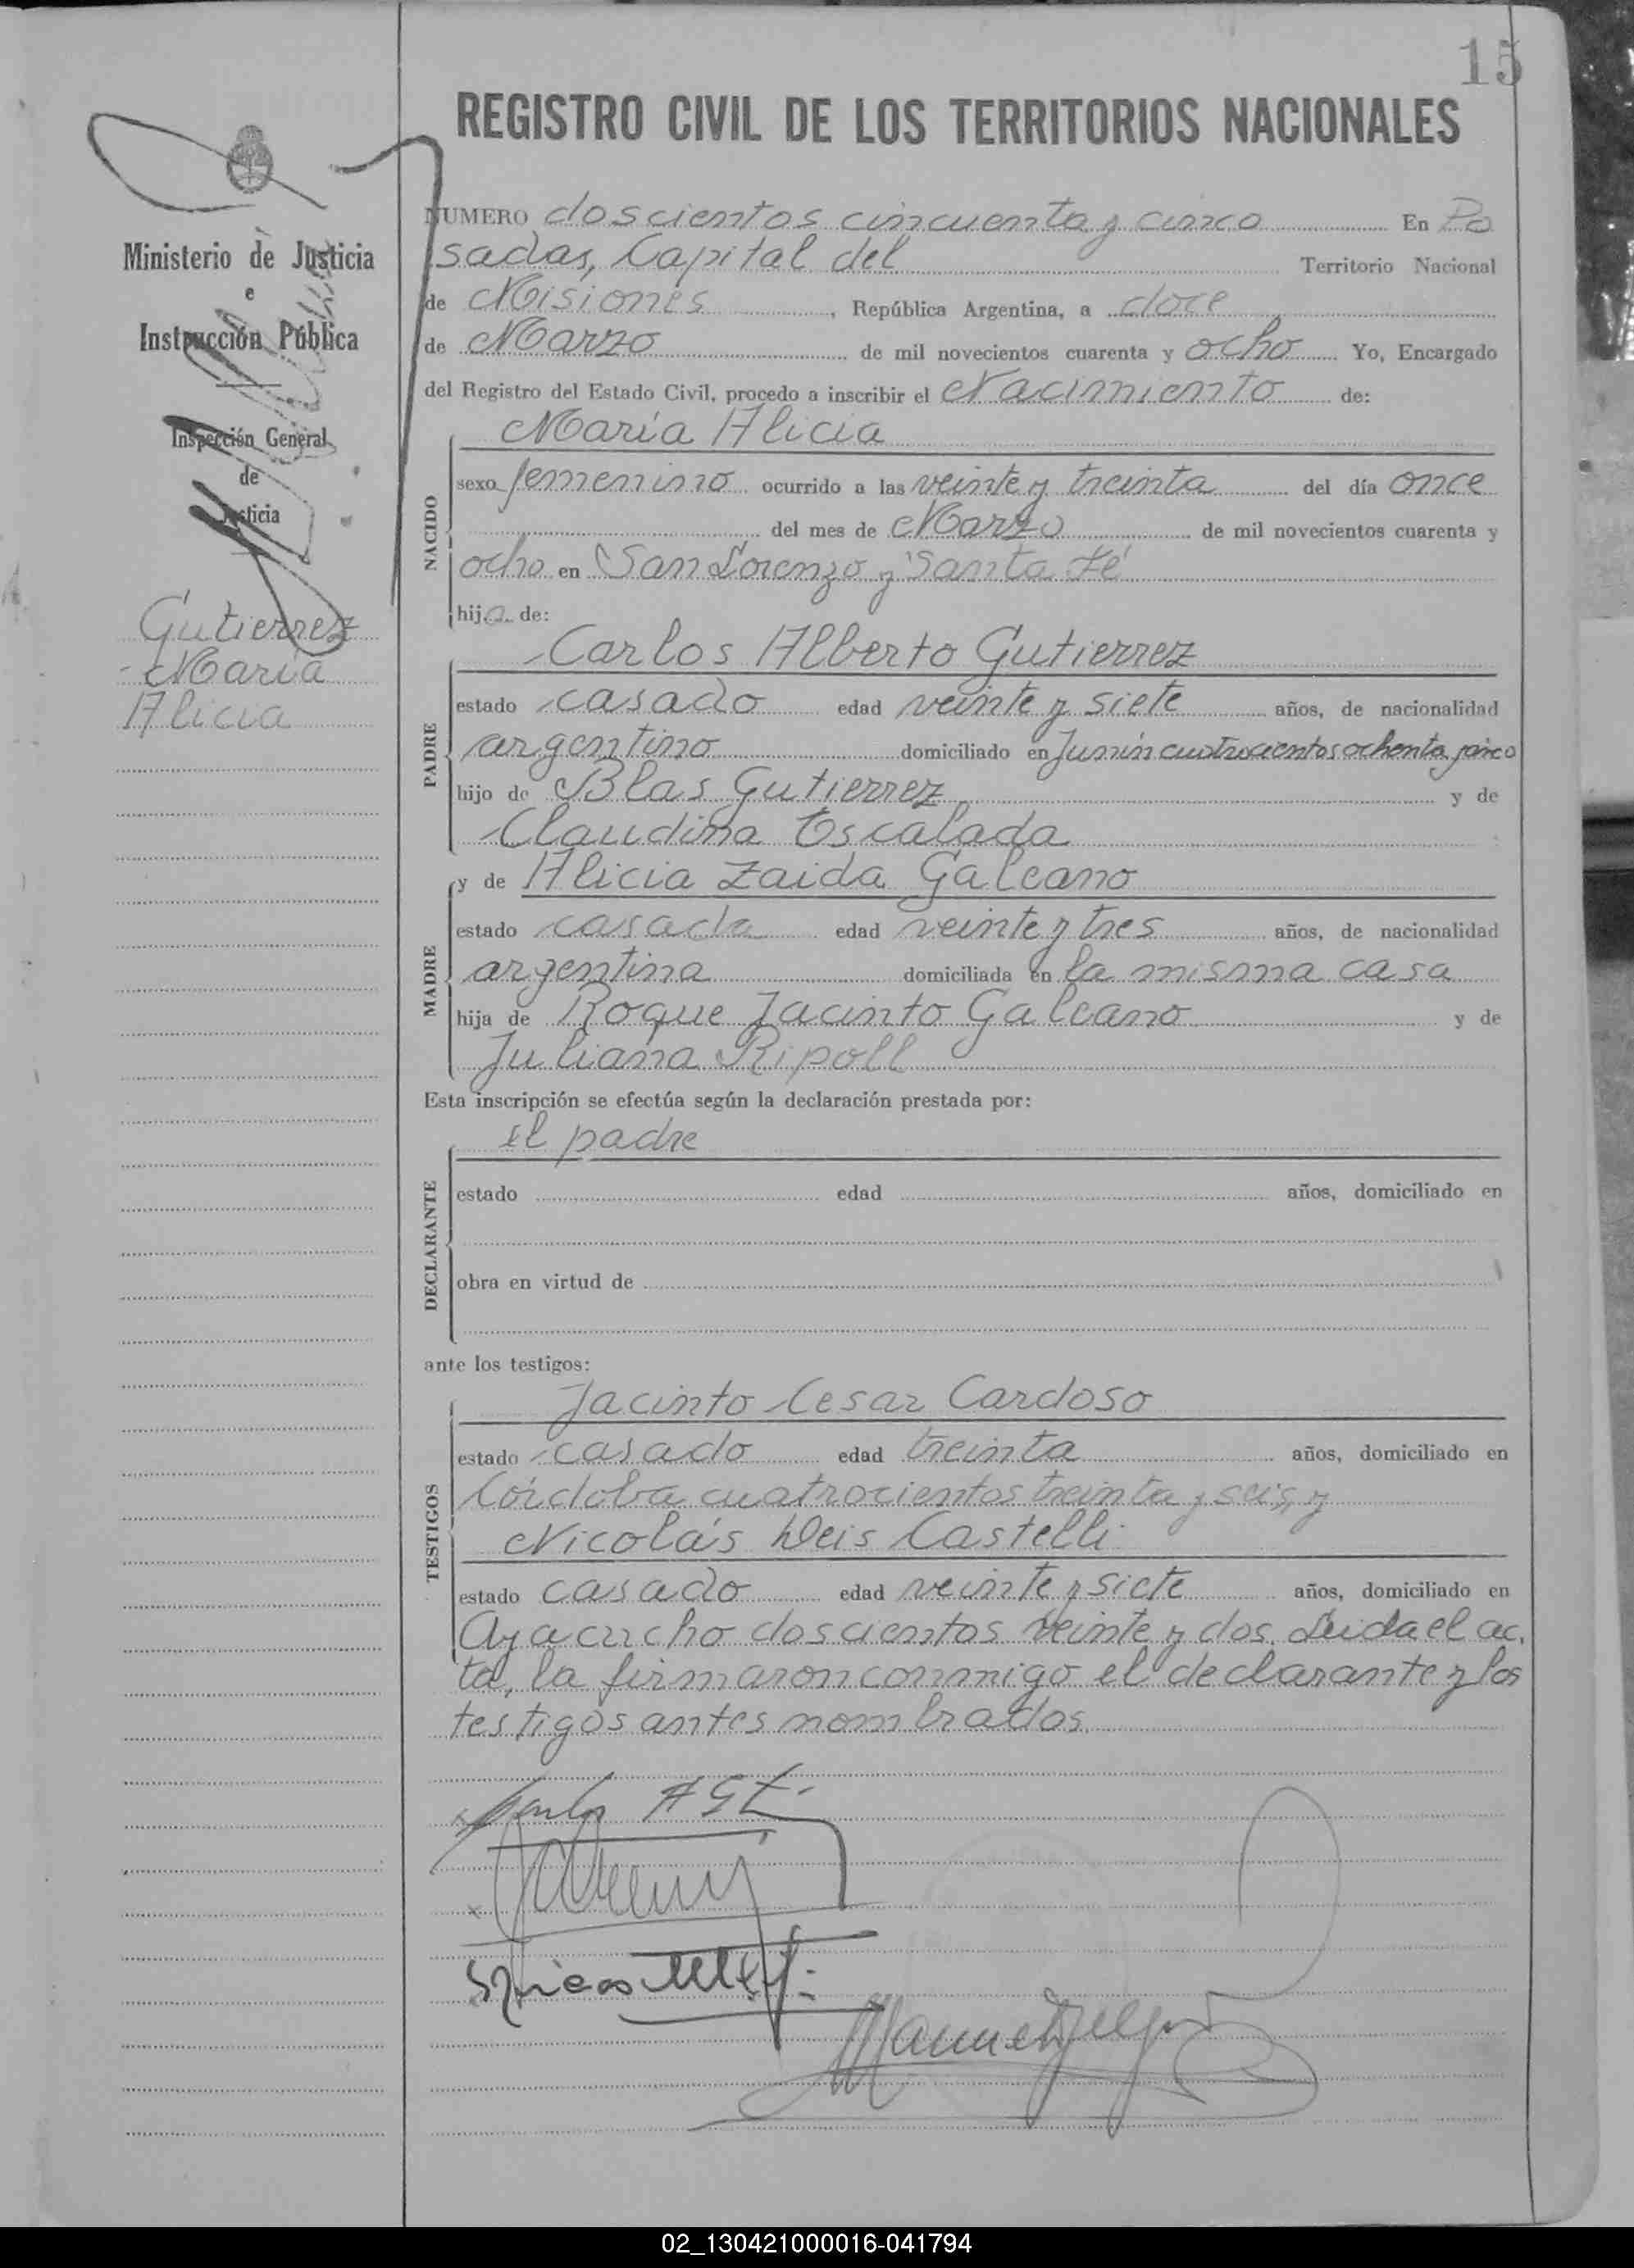 15
REGISTRO CIVIL DE LOS TERRITORIOS NACIONALES
Ministerio de Justicia
e
Instrucción Pública
Inspección General
de
Justicia
Gutierrez
María
Alicia
NUMERO doscientos cincuenta y cinco En Po
sadas, Capital del Territorio Nacional
de Misiones, República Argentina, a doce
de Marzo de mil novecientos cuarenta y ocho Yo, Encargado
del Registro del Estado Civil, procedo a inscribir el Nacimiento de:
NACIDO
María Alicia
sexo femenino ocurrido a las veinte y treinta del día once
del mes de Marzo de mil novecientos cuarenta y
ocho en San Lorenzo y Santa Fé
hija de:
PADRE
Carlos Alberto Gutierrez
estado casado edad veinte y siete años, de nacionalidad
argentino domiciliado en Junín cuatrocientos ochenta y cinco
hijo de Blas Gutierrez y de
Claudina Escalada
MADRE
y de Alicia Zaida Galeano
estado casada edad veinte y tres años, de nacionalidad
argentina domiciliada en la misma casa
hija de Roque Jacinto Galeano y de
Juliana Ripoll
Esta inscripción se efectúa según la declaración prestada por:
DECLARANTE
el padre
estado edad años, domiciliado en
obra en virtud de
ante los testigos:
TESTIGOS
Jacinto Cesar Cardoso
estado casado edad treinta años, domiciliado en
Córdoba cuatrocientos treinta y seis, y
Nicolás Castelli
estado casado edad veinte y siete años, domiciliado en
Ayacucho doscientos veinte y dos. Leida el ac.
ta, la firmaron conmigo el declarante y los
testigos antes nombrados.
02_130421000016-041794